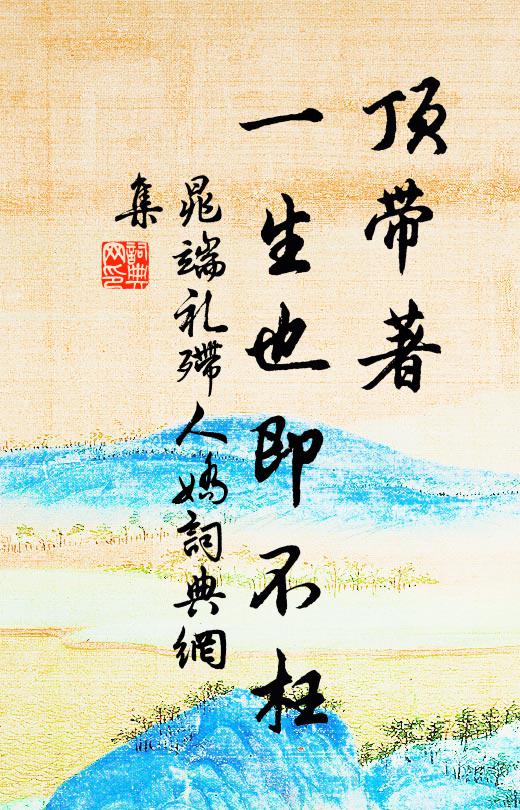 顶带著
一生也即不枉
晁端礼殢人娇詞典網
集
詞典网印